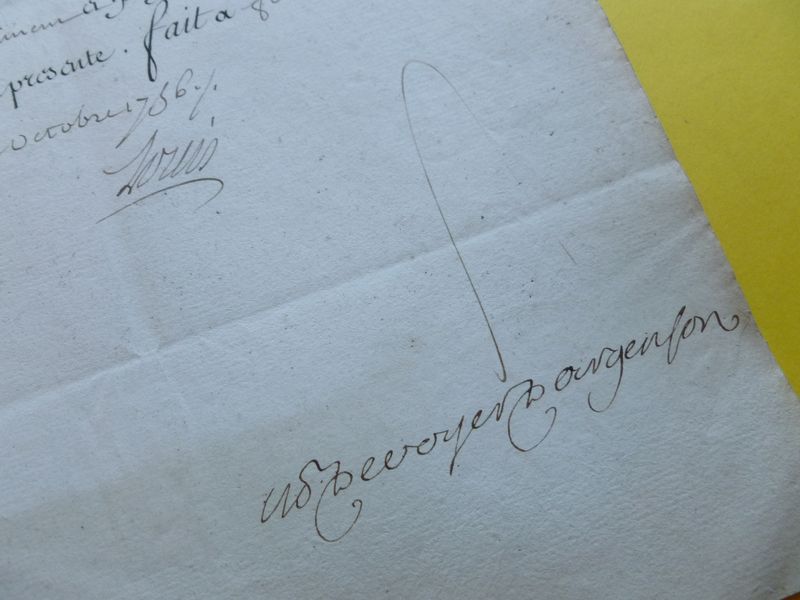 presente. fait a
octobre 1756
Louis
M. De voyer D argenson